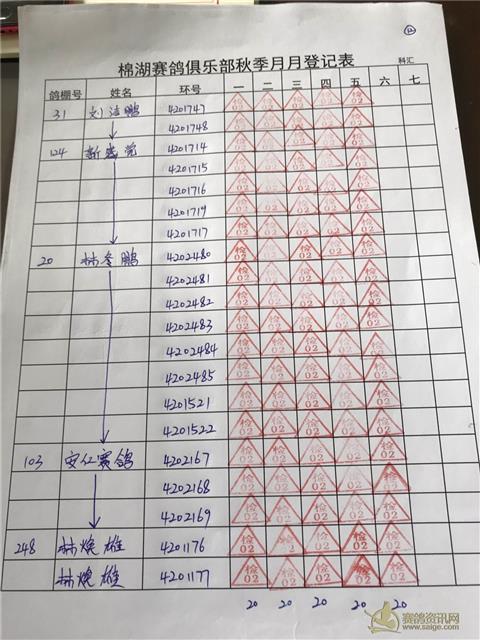 12
棉湖赛鸽俱乐部秋季月月登记表
科汇
鸽棚号 姓名 环号 一 二 三 四 五 六 七
31 刘洁鹏 4201747 检02 检02 检02 检02 检02
4201748 检02 检02 检02 检02 检02
124 4201714 检02 检02 检02 检02 检02
4201715 检02 检02 检02 检02 检02
4201716 检02 检02 检02 检02 检02
4201719 检02 检02 检02 检02 检02
4201717 检02 检02 检02 检02 检02
20 林冬鹏 4202480 检02 检02 检02 检02 检02
4202481 检02 检02 检02 检02 检02
4202482 检02 检02 检02 检02 检02
4202483 检02 检02 检02 检02 检02
4202484 检02 检02 检02 检02 检02
4202485 检02 检02 检02 检02 检02
4201521 检02 检02 检02 检02 检02
4201522 检02 检02 检02 检02 检02
103 安仁赛鸽 4202167 检02 检02 检02 检02 检02
4202168 检02 检02 检02 检02 检02
4202169 检02 检02 检02 检02 检02
248 林焕雄 4201176 检02 检02 检02 检02 检02
林焕雄 4201177 检02 检02 检02 检02 检02
20 20 20 20 20
赛鸽资讯网
www.saige.com